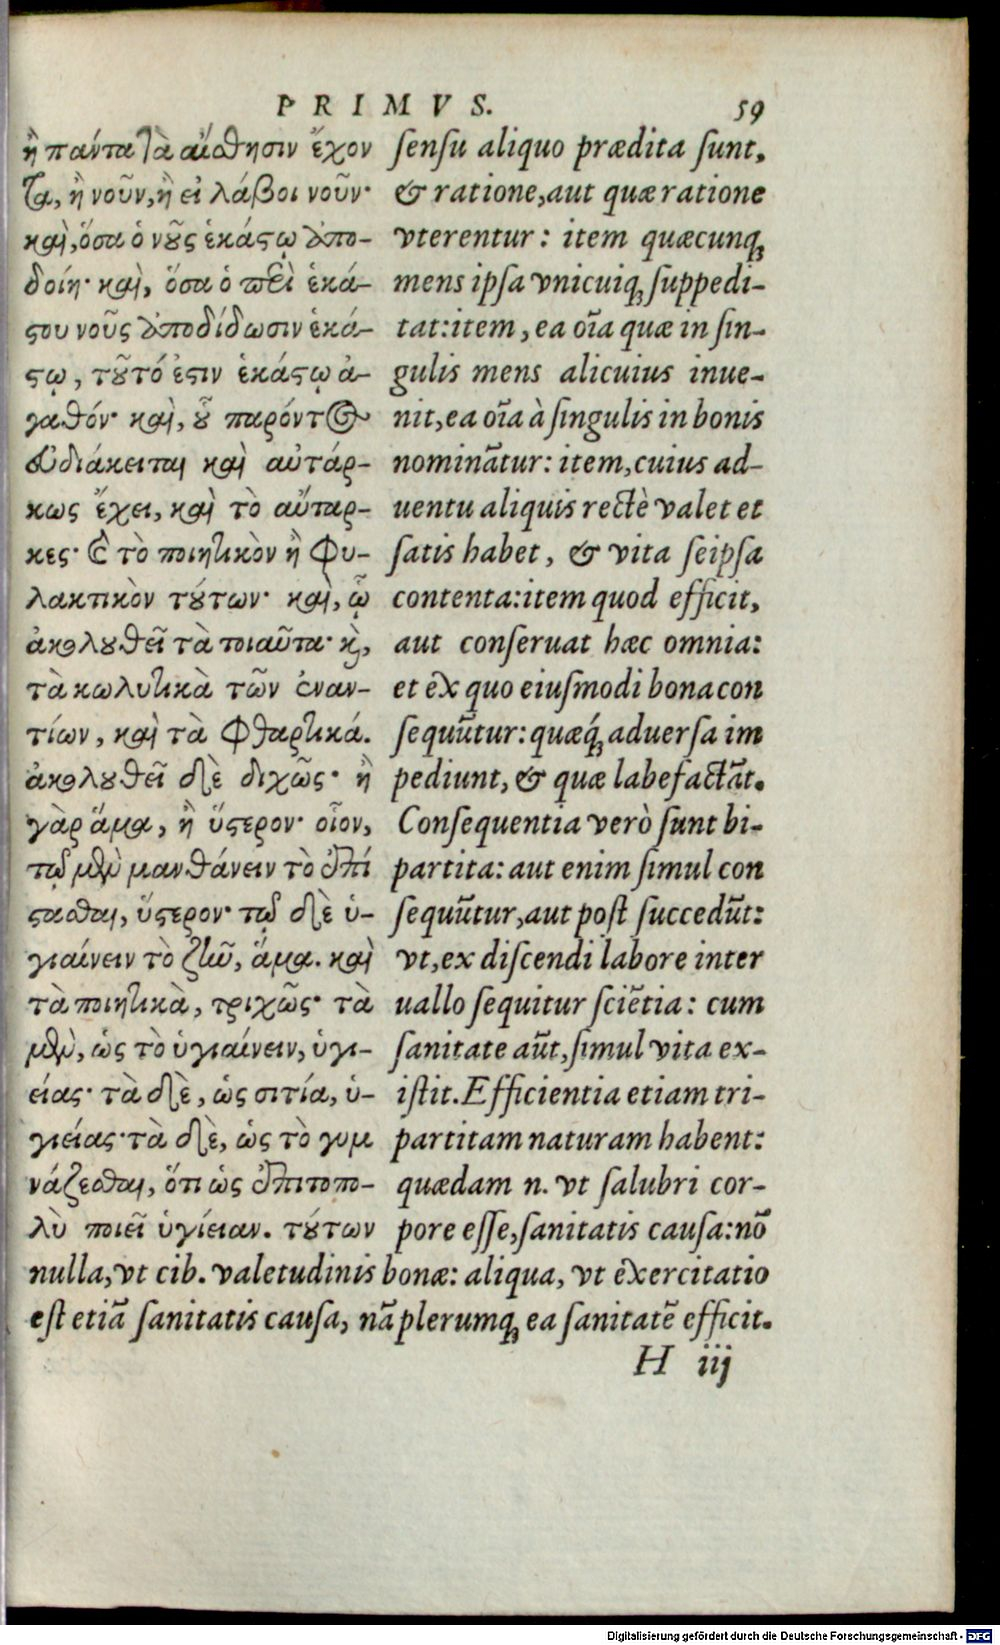 PRIMVS. 59
ἢ πάντα τὰ αἴσθησιν ἔχον
τα, ἢ νοῦν, ἢ εἰ λάβοι νοῦν·
καὶ, ὅσα ὁ νοῦς ἑκάστῳ ἀπο-
δοίη· καὶ, ὅσα ὁ περὶ ἑκά-
στου νοῦς ἀποδίδωσιν ἑκά-
στῳ, τοῦτό ἐστιν ἑκάστῳ ἀ-
γαθόν· καὶ, οὗ παρόντος
εὖ διάκειται καὶ αὐτάρ-
κως ἔχει, καὶ τὸ αὔταρ-
κες· καὶ τὸ ποιητικὸν ἢ φυ-
λακτικὸν τούτων· καὶ, ᾧ
ἀκολουθεῖ τὰ τοιαῦτα· καὶ,
τὰ κωλυτικὰ τῶν ἐναν-
τίων, καὶ τὰ φθαρτικά.
ἀκολουθεῖ δὲ διχῶς· ἢ
γὰρ ἅμα, ἢ ὕστερον· οἷον,
τῷ μὲν μανθάνειν τὸ ἐπί
στασθαι, ὕστερον· τῷ δὲ ὑ-
γιαίνειν τὸ ζῆν, ἅμα. καὶ
τὰ ποιητικὰ, τριχῶς· τὰ
μὲν, ὡς τὸ ὑγιαίνειν, ὑγι-
είας· τὰ δὲ, ὡς σιτία, ὑ-
γιείας· τὰ δὲ, ὡς τὸ γυμ
νάζεσθαι, ὅτι ὡς ἐπιτοπο-
λὺ ποιεῖ ὑγίειαν. τούτων
sensu aliquo prædita sunt,
& ratione, aut quæ ratione
vterentur: item quæcunq;
mens ipsa vnicuiq; suppedi-
tat: item, ea oĩa quæ in sin-
gulis mens alicuius inue-
nit, ea oĩa à singulis in bonis
nominãtur: item, cuius ad-
uentu aliquis rectè valet et
satis habet, & vita seipsa
contenta: item quod efficit,
aut conseruat hæc omnia:
et ẽx quo eiusmodi bona con
sequũtur: quæq́; aduersa im
pediunt, & quæ labefactãt.
Consequentia verò sunt bi-
partita: aut enim simul con
sequũtur, aut post succedũt:
vt, ex discendi labore inter
uallo sequitur sciẽtia: cum
sanitate aũt, simul vita ex-
istit. Efficientia etiam tri-
partitam naturam habent:
quædam n. vt salubri cor-
pore esse, sanitatis causa: nõ
nulla, vt cib. valetudinis bonæ: aliqua, vt ẽxercitatio
est etiã sanitatis causa, nã plerumq; ea sanitatẽ efficit.
H iij
Digitalisierung gefördert durch die Deutsche Forschungsgemeinschaft - DFG